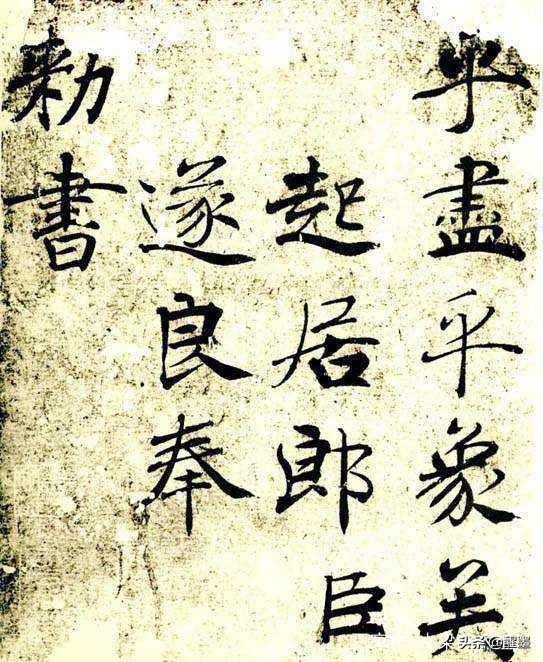 乎盡乎象矣
起居郎臣
遂良奉
勅書
头条@醒墨